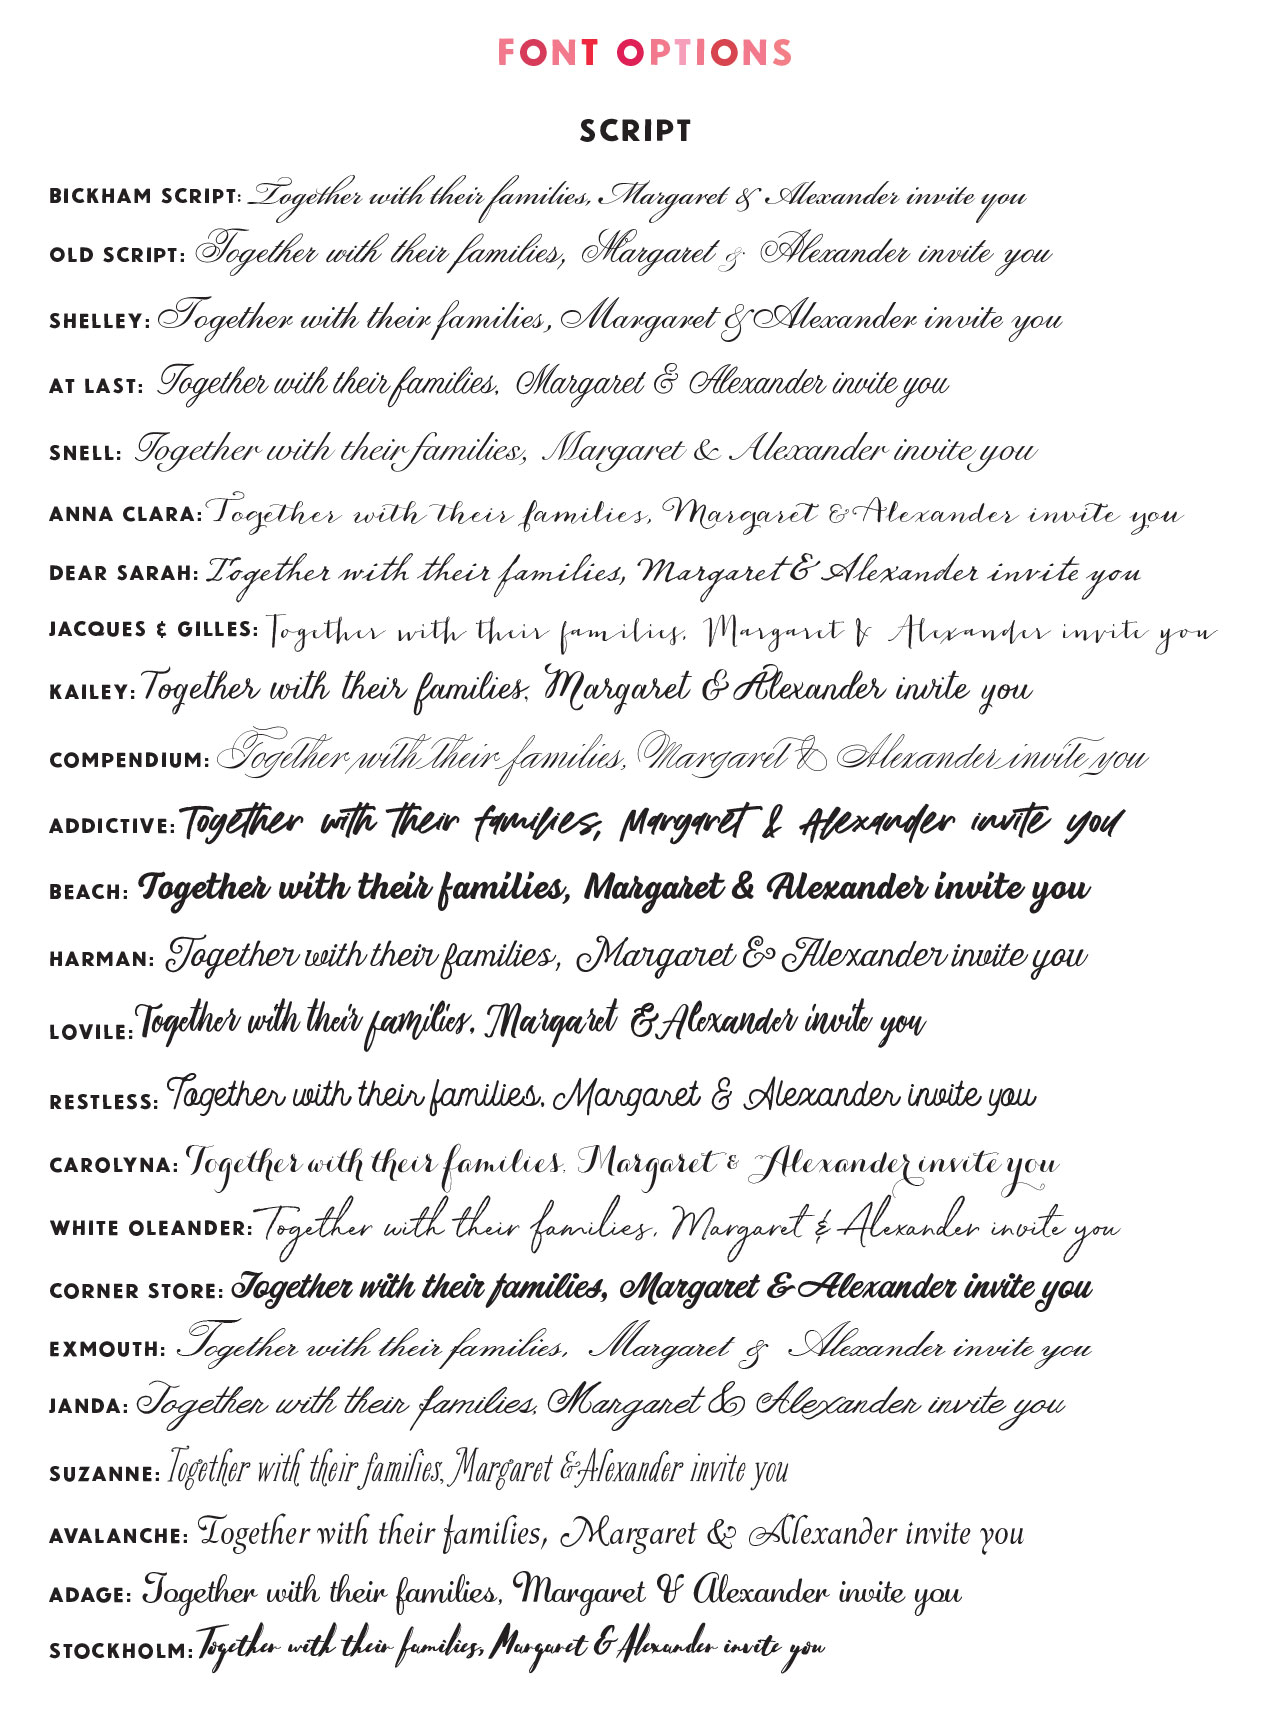 FONT OPTIONS
SCRIPT
BICKHAM SCRIPT: Together with their families, Margaret & Alexander invite you
OLD SCRIPT: Together with their families, Margaret & Alexander invite you
SHELLEY: Together with their families, Margaret & Alexander invite you
AT LAST: Together with their families, Margaret & Alexander invite you
SNELL: Together with their families, Margaret & Alexander invite you
ANNA CLARA: Together with their families, Margaret & Alexander invite you
DEAR SARAH: Together with their families, Margaret & Alexander invite you
JACQUES & GILLES: Together with their families, Margaret & Alexander invite you
KAILEY: Together with their families, Margaret & Alexander invite you
COMPENDIUM: Together with their families, Margaret & Alexander invite you
ADDICTIVE: Together with their families, Margaret & Alexander invite you
BEACH: Together with their families, Margaret & Alexander invite you
HARMAN: Together with their families, Margaret & Alexander invite you
LOVILE: Together with their families, Margaret & Alexander invite you
RESTLESS: Together with their families, Margaret & Alexander invite you
CAROLYNA: Together with their families, Margaret & Alexander invite you
WHITE OLEANDER: Together with their families, Margaret & Alexander invite you
CORNER STORE: Together with their families, Margaret & Alexander invite you
EXMOUTH: Together with their families, Margaret & Alexander invite you
JANDA: Together with their families, Margaret & Alexander invite you
SUZANNE: Together with their families, Margaret & Alexander invite you
AVALANCHE: Together with their families, Margaret & Alexander invite you
ADAGE: Together with their families, Margaret & Alexander invite you
STOCKHOLM: Together with their families, Margaret & Alexander invite you